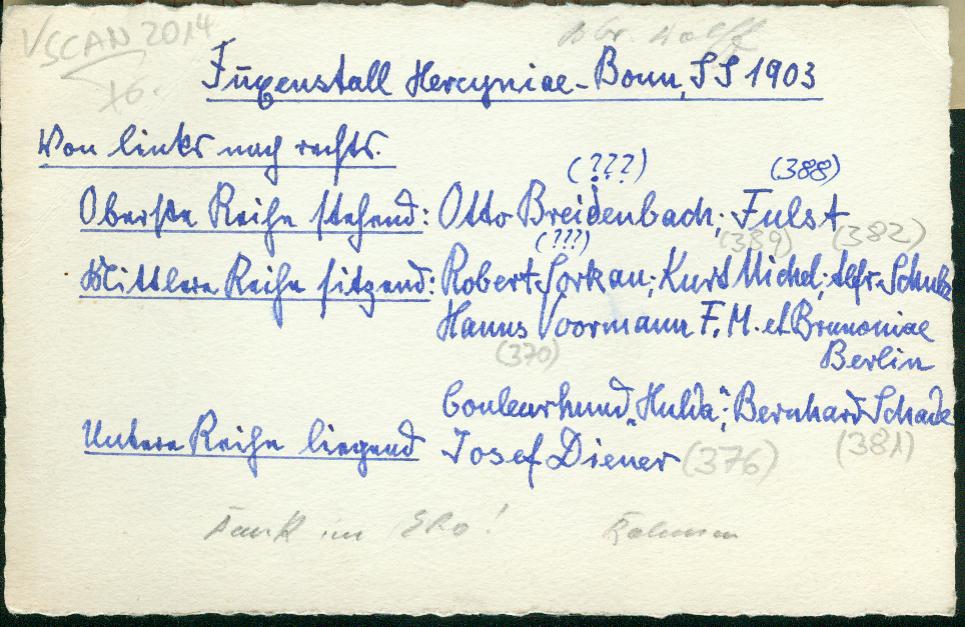 VSCAN 2014
Fuxenstall Hercyniae-Bonn, SS 1903
Von links nach rechts.
(???) (388)
Oberste Reihe stehend: Otto Breidenbach; Fulst
(???) (389) (382)
Mittlere Reihe sitzend: Robert Sorkau; Kurt Michel; Alfr. Schulz
Hanns Voormann F.M. et Brunoniae
(370) Berlin
Couleurhund „Hulda“; Bernhard Schade
Untere Reihe liegend Josef Diener (376) (381)